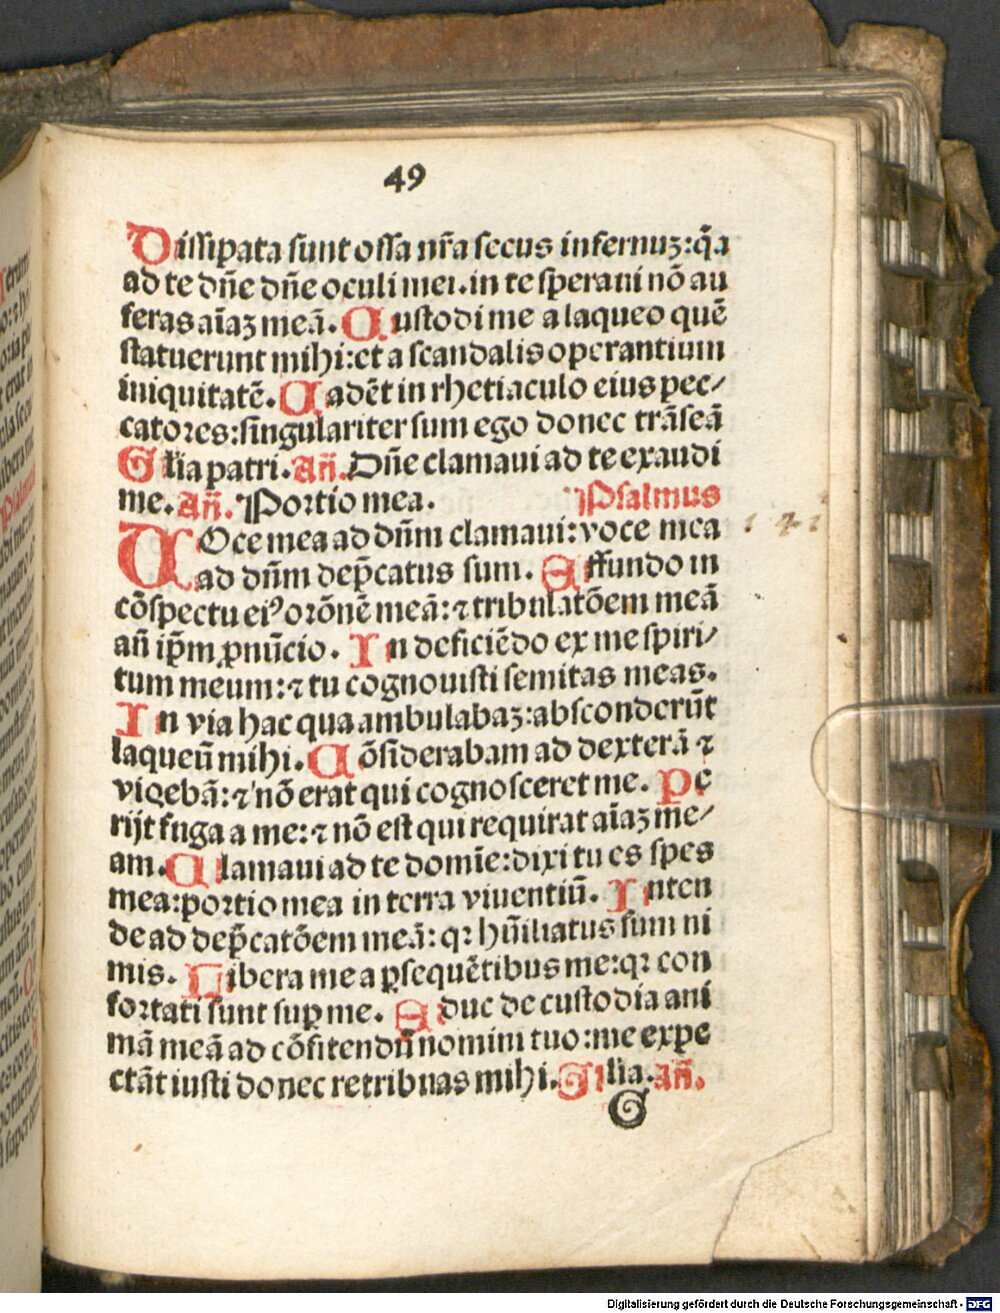 49
Dissipata sunt ossa nr̃a secus infernuꝫ:q̃a
ad te dn̄e dn̄e oculi mei.in te speraui nō au
feras aīaꝫ meā. Custodi me a laqueo quē
statuerunt mihi:et a scandalis operantium
iniquitatē. Cadēt in rhetiaculo eius pec⸗
catores:singulariter sum ego donec trāseā
Glia patri. Añ. Dn̄e clamaui ad te exaudi
me. Añ. Portio mea. Psalmus
VOce mea ad dn̄m clamaui:voce mea 141
ad dn̄m dep̄catus sum. Effundo in
cōspectu eiꝰ orōnē meā:⁊ tribulatōem meā
añ ip̄m ꝓnūcio. In deficiēdo ex me spiri⸗
tum meum:⁊ tu cognouisti semitas meas.
In via hac qua ambulabaꝫ:absconderūt
laqueū mihi. Cōsiderabam ad dexterā ⁊
videbā:⁊ nō erat qui cognosceret me. Pe
rijt fuga a me:⁊ nō est qui requirat aīaꝫ me⸗
am. Clamaui ad te domīe:dixi tu es spes
mea:portio mea in terra viuentiū. Inten
de ad dep̄catōem meā:qꝛ hūiliatus sum ni
mis. Libera me a ꝑsequētibus me:qꝛ con
fortati sunt suꝑ me. Educ de custodia ani
mā meā ad cōfitendū nomini tuo:me expe
ctāt iusti donec retribuas mihi. Glia. Añ.
G
Digitalisierung gefördert durch die Deutsche Forschungsgemeinschaft - DFG